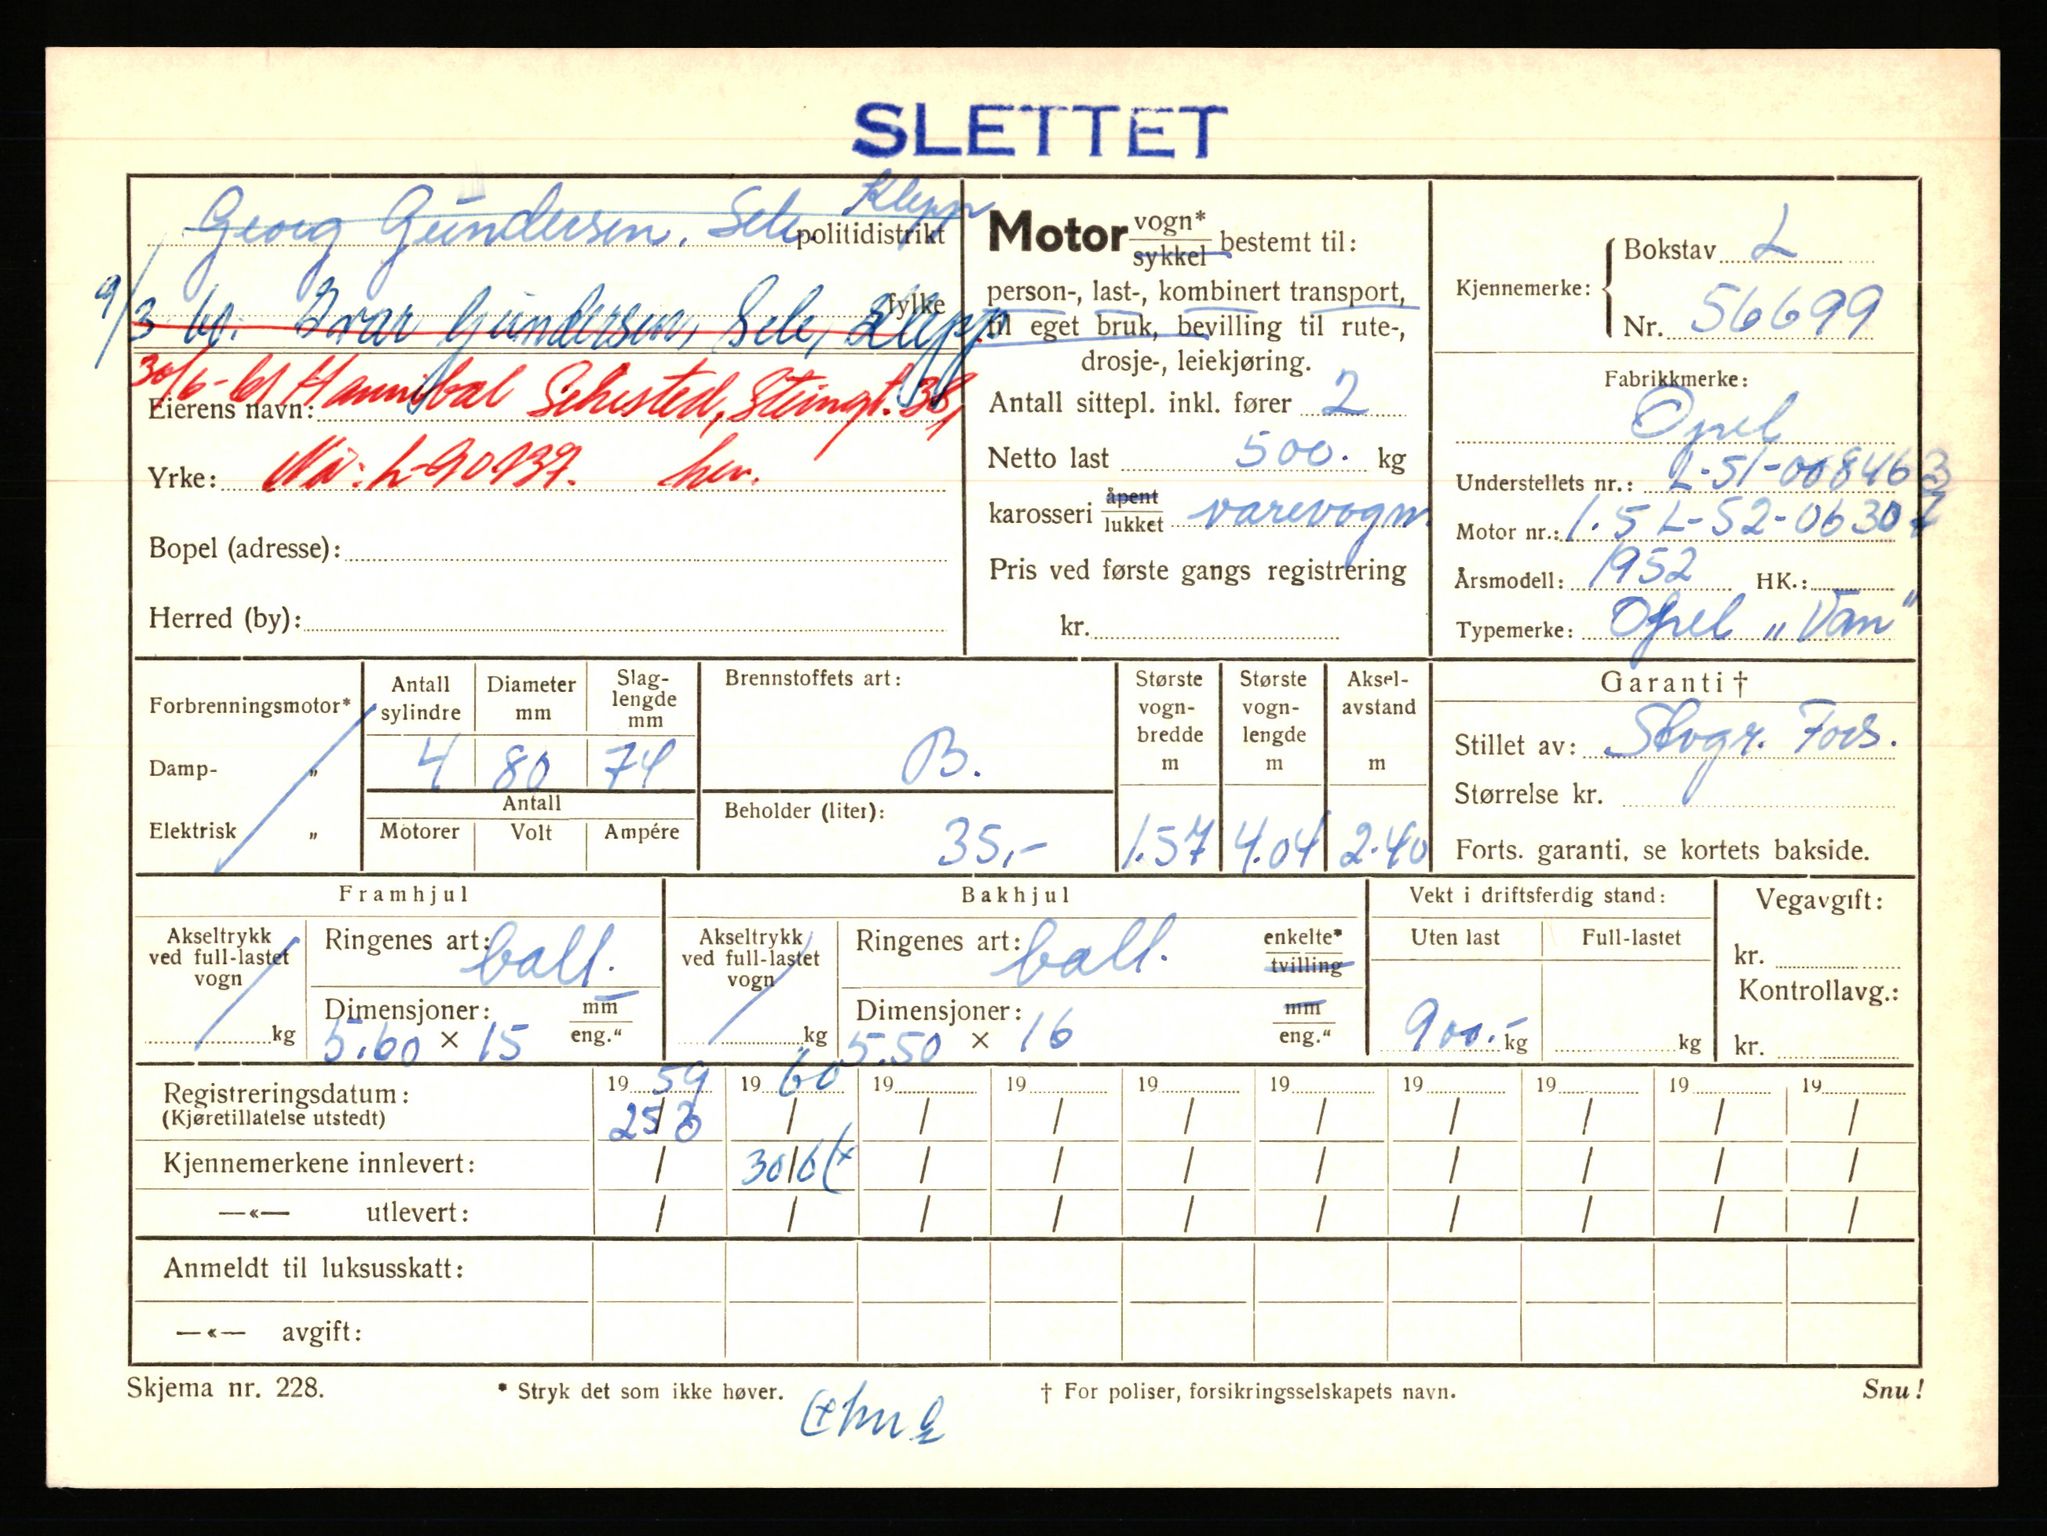 SLETTET
Georg Gundersen. Sele. Klepp
politidistrikt
9/3 60. Ivar Gundersen, Sele, Klepp.
fylke
30/6-61 Hannibal Sehested, Steingt. 38,
Eierens navn:
Yrke: Nå: L-90137. her.
Bopel (adresse):
Herred (by):
Motor vogn* sykkel bestemt til:
person-, last-, kombinert transport,
til eget bruk, bevilling til rute-,
drosje-, leiekjøring.
Antall sittepl. inkl. fører 2
Netto last 500. kg
karosseri åpent lukket varevogn.
Pris ved første gangs registrering
kr.
Kjennemerke: Bokstav L
Nr. 56699
Fabrikkmerke:
Opel
Understellets nr.: L-51-008463
Motor nr.: 1.5 L-52-06307
Årsmodell: 1952 HK.:
Typemerke: Opel „Van"
Forbrenningsmotor*
Damp- „
Elektrisk „
Antall sylindre Diameter mm Slaglengde mm
4 80 74
Antall
Motorer Volt Ampére
Brennstoffets art:
B.
Beholder (liter):
35,-
Største vognbredde m 1.57
Største vognlengde m 4.04
Akselavstand m 2.40
Garanti †
Stillet av: Stvgr. Fors.
Størrelse kr.
Forts. garanti, se kortets bakside.
Framhjul
Akseltrykk ved full-lastet vogn kg
Ringenes art: ball.
Dimensjoner: mm eng."
5.60 × 15
Bakhjul
Akseltrykk ved full-lastet vogn kg
Ringenes art: ball. enkelte* tvilling
Dimensjoner: mm eng."
5.50 × 16
Vekt i driftsferdig stand:
Uten last Full-lastet
900.- kg kg
Vegavgift:
kr.
Kontrollavg.:
kr.
Registreringsdatum: 19 59 19 60 19 19 19 19 19 19 19 19
(Kjøretillatelse utstedt) 25/3 / / / / / / / / /
Kjennemerkene innlevert: / 30/6 (x / / / / / / / /
—«— utlevert: / / / / / / / / / /
Anmeldt til luksusskatt:
—«— avgift:
Skjema nr. 228. * Stryk det som ikke høver. † For poliser, forsikringsselskapets navn. Snu!